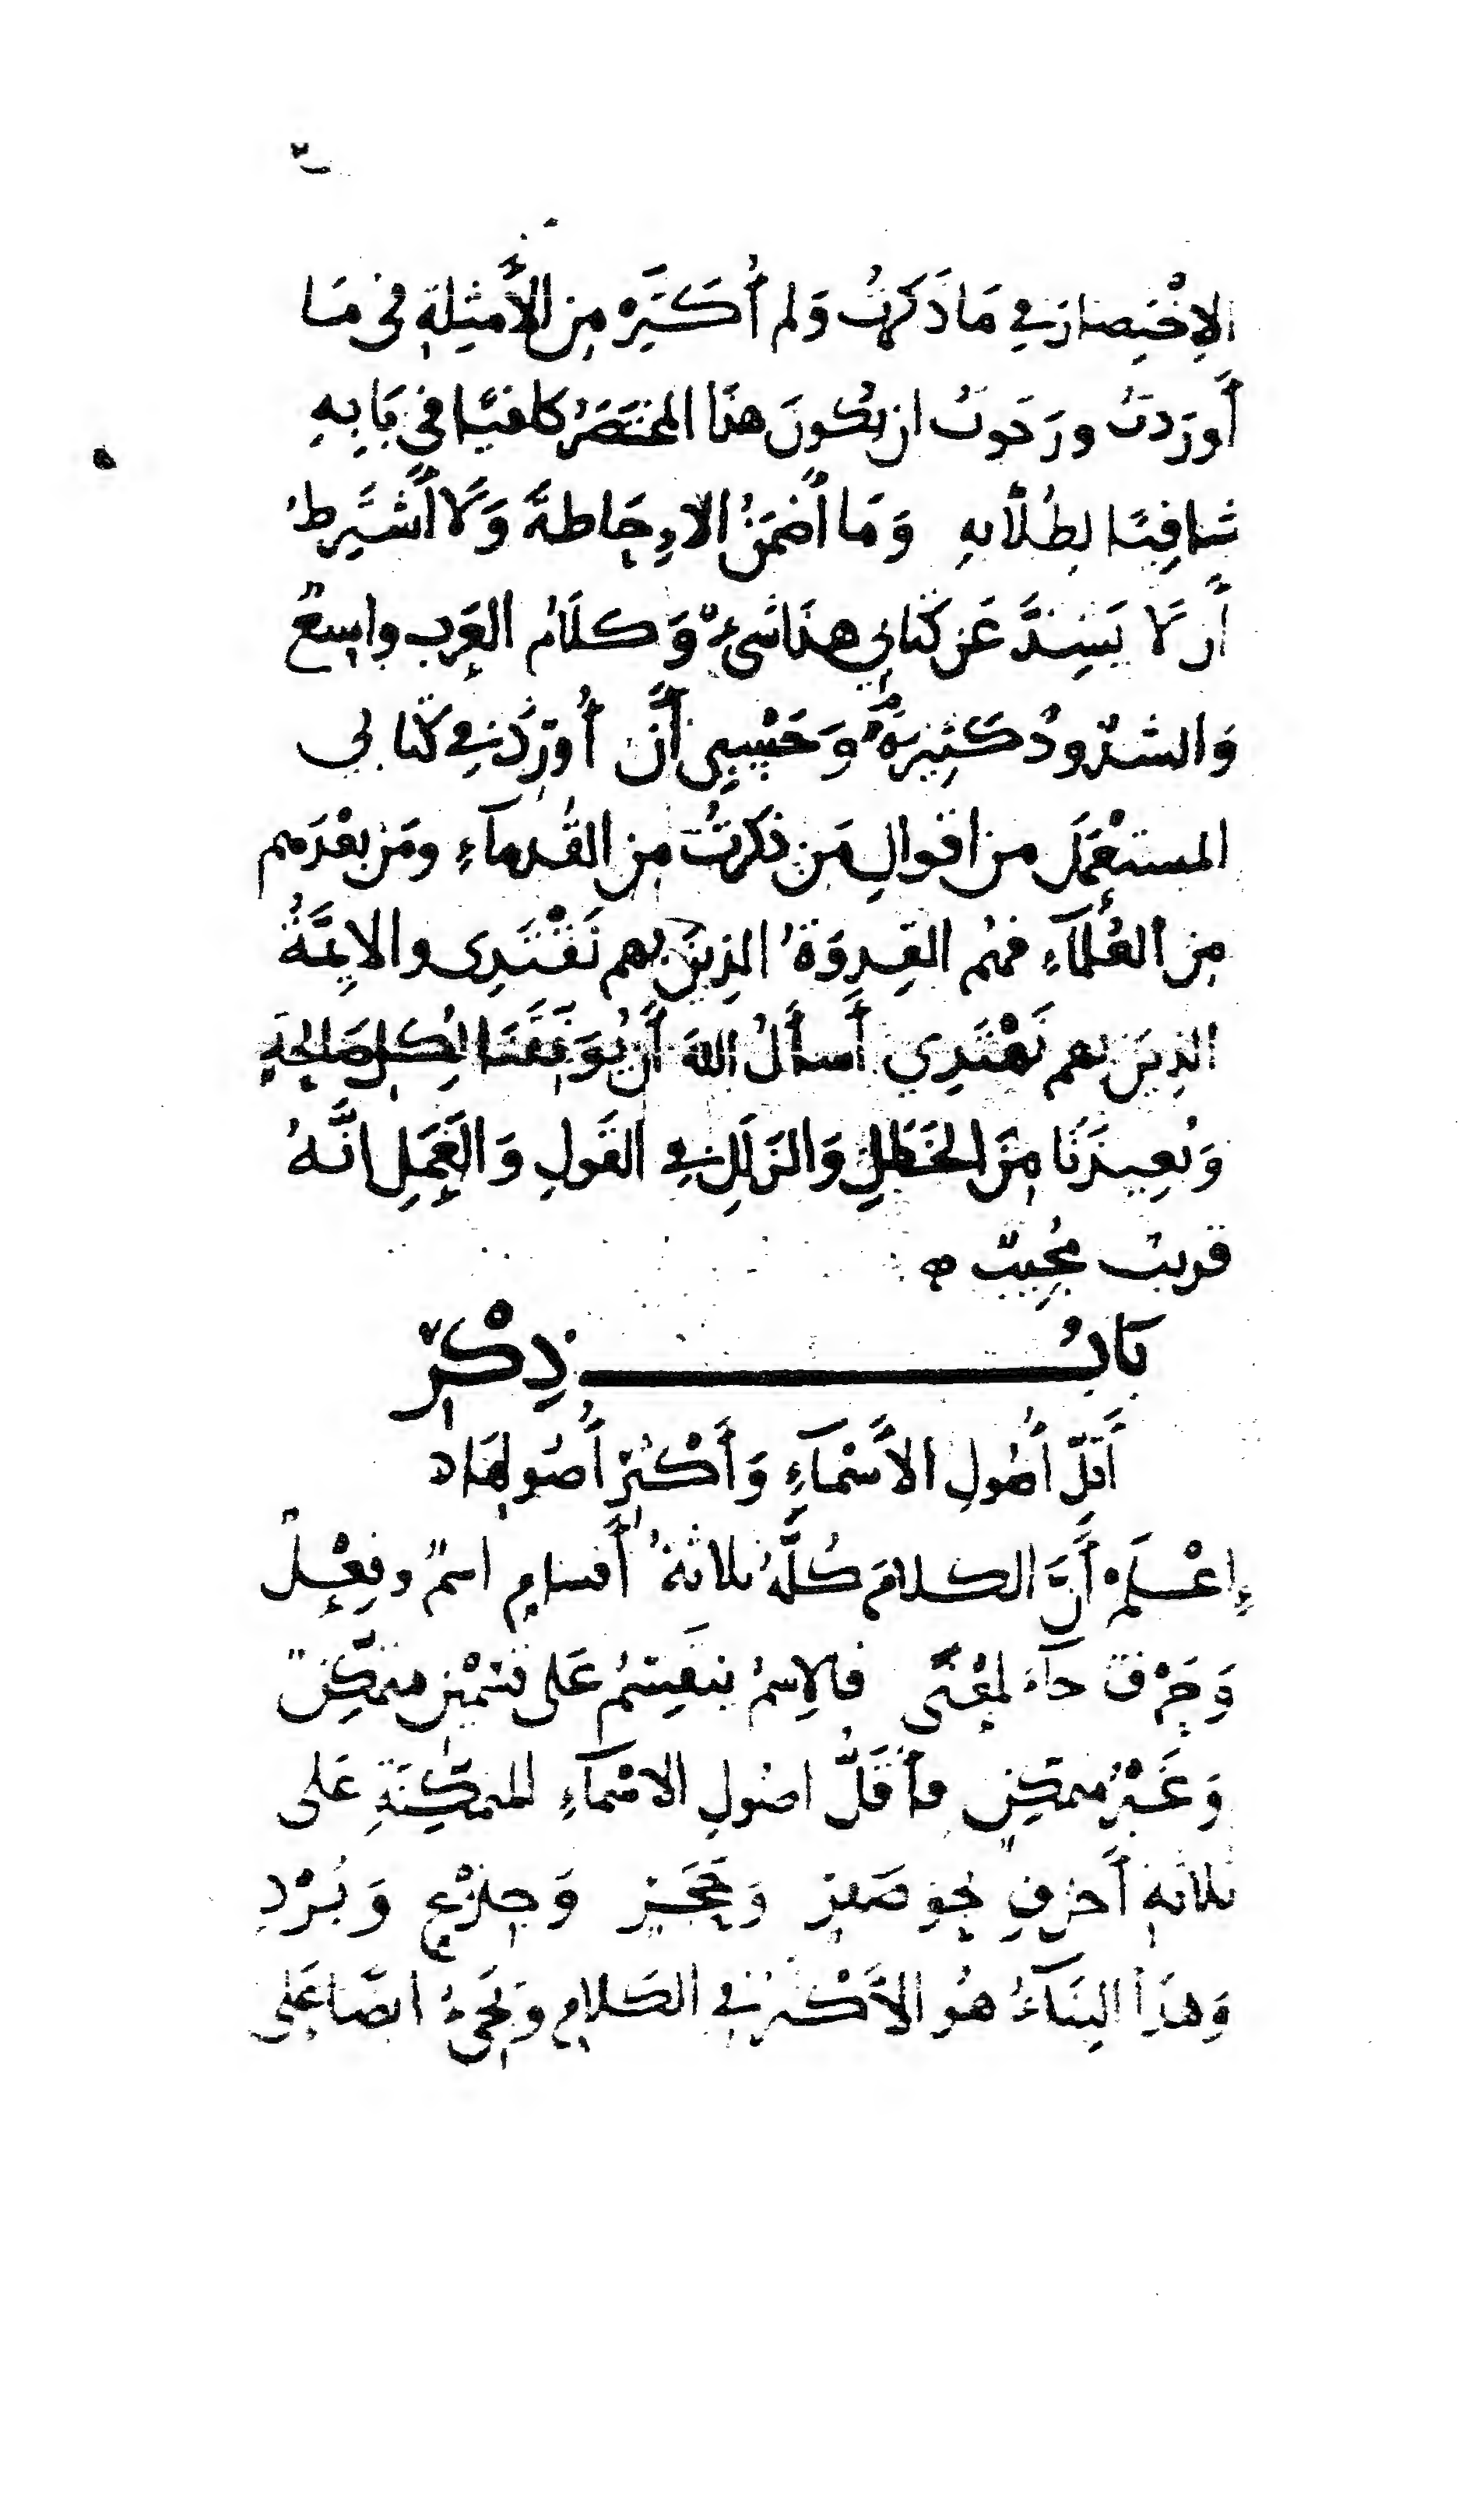 الاِخْتِصارَ في مَا ذَكَرتُ وَلم أُكَثِّرْ مِن الأَمثِلةِ في مَا
أَورَدتُ ورَجَوتُ ان يكُونَ هذَا المختَصَرُ كافيًا في بَابِهِ
شافِيًا لِطُلّابهِ وَمَا أَضمَنُ الاِحَاطةَ وَلَا أَشتَرِطُ
أَن لَا يَشِذَّ عَن كتابي هذَا شَيءٌ وَكلَامُ العَرَب واسِعٌ
وَالشذُوذُ كَثِيرَةٌ وَحَسْبِي أَن أُورِدَ في كتابي
المستعْمَلَ من اقوالِ مَن ذكرتُ مِن القُدماءِ ومَن بعْدَهم
مِن العُلمآءِ فهُم القِدوَةُ الذِينَ بهم نَقْتَدِى والايِمَّةُ
الذِينَ بهم نَهْتَدِي أَسأَلُ اللهَ أَن يُوَفِّقَنَا لِكلِّ صَالِحَةٍ
وَيُعِيذَنَا مِنَ الخَطَلِ وَالزلَلِ في القَولِ وَالعَمَلِ انَّهُ
قريبٌ مُجِيبٌ ه
بَابُ ذِكْرِ
أَقَلِّ أُصُولِ الأَسْمَآءِ وَأَكْثَرِ أُصُولِهَا ه
إِعْلَمْ أَنَّ الكلامَ كُلَّهُ ثلاثةُ أَقسامٍ اسمٌ وفِعْلٌ
وَحَرْفٌ جآءَ لمعْنًى فالاِسمُ ينقَسِمُ عَلى قسْمَيْنِ متمَكِّنٌ
وَغَيْرُ متمَكِّنٍ فأَقَلُّ اصُولِ الاسْمآءِ المتمَكِّنَةِ عَلى
ثلاثةِ أَحرُفٍ نحو صَقرٍ وَحَجَرٍ وَجِذْعٍ وَبُرْدٍ
وَهذَا البِنَآءُ هُو الأَكْثَرُ في الكَلامِ وَيَجِيءُ ايضًا عَلى